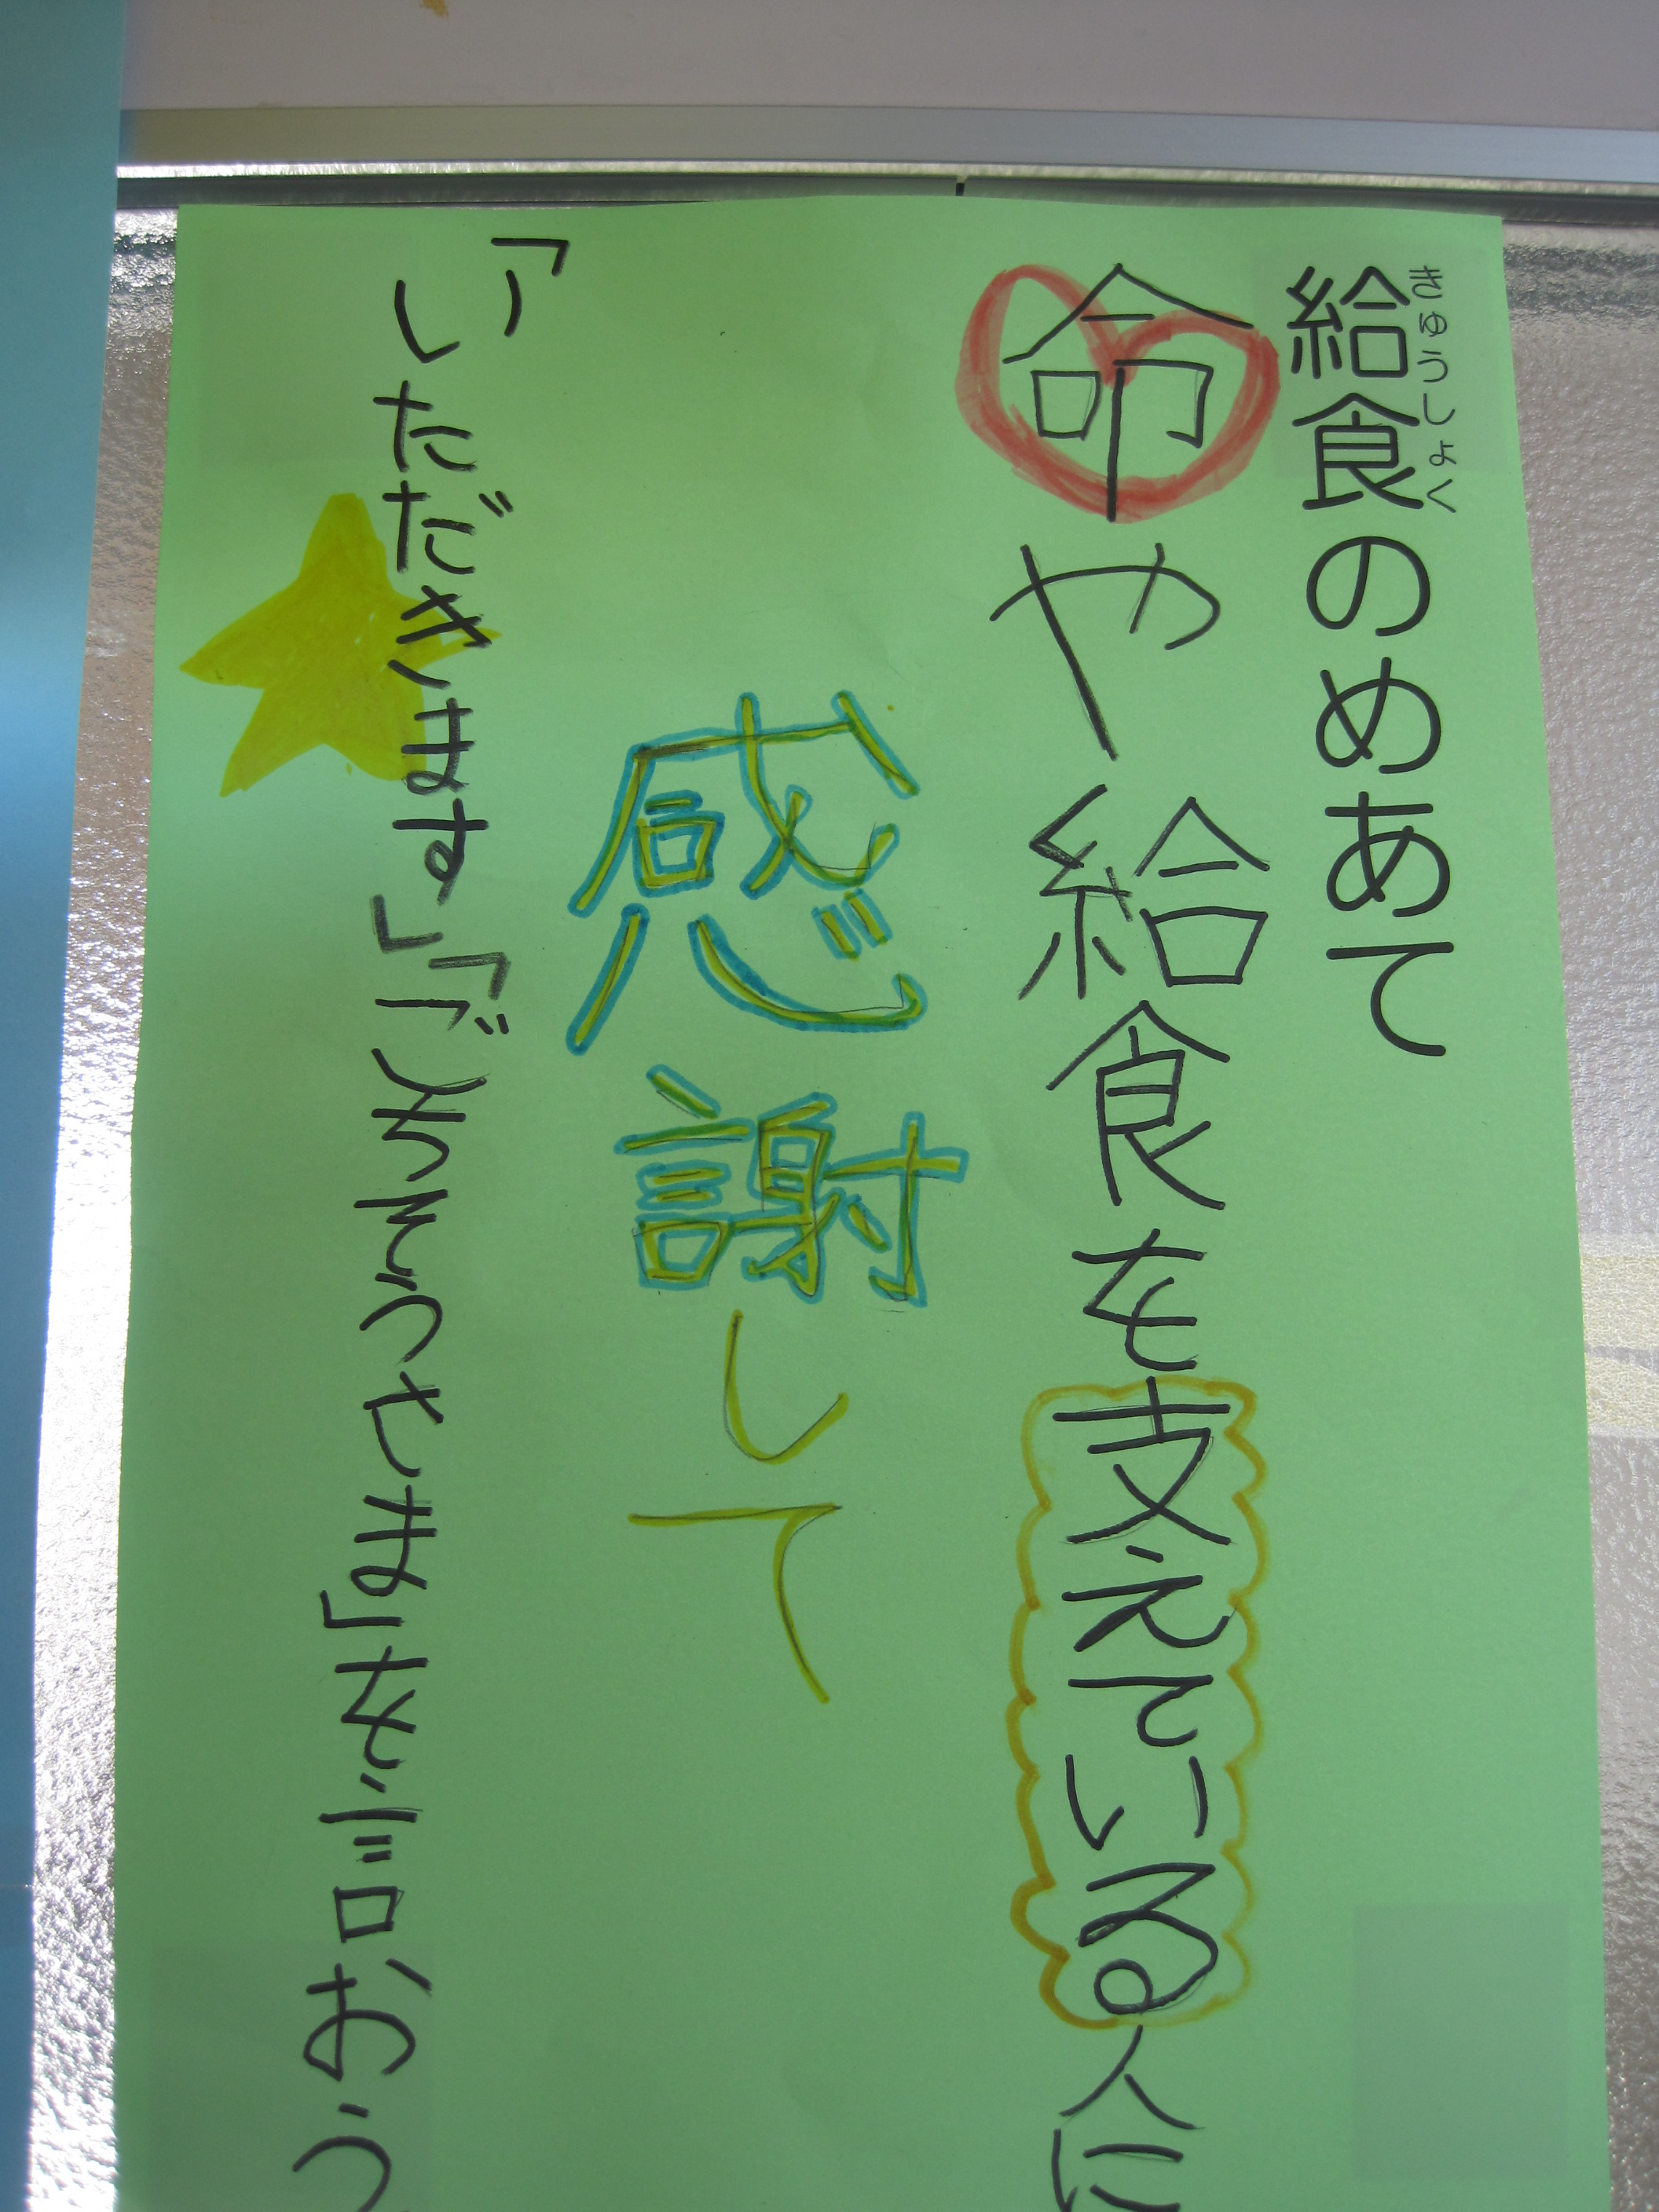 給食のめあて
きゅうしょく
命や給食を支えている人に
感謝して
「いただきます」「ごちそうさま」を言おう